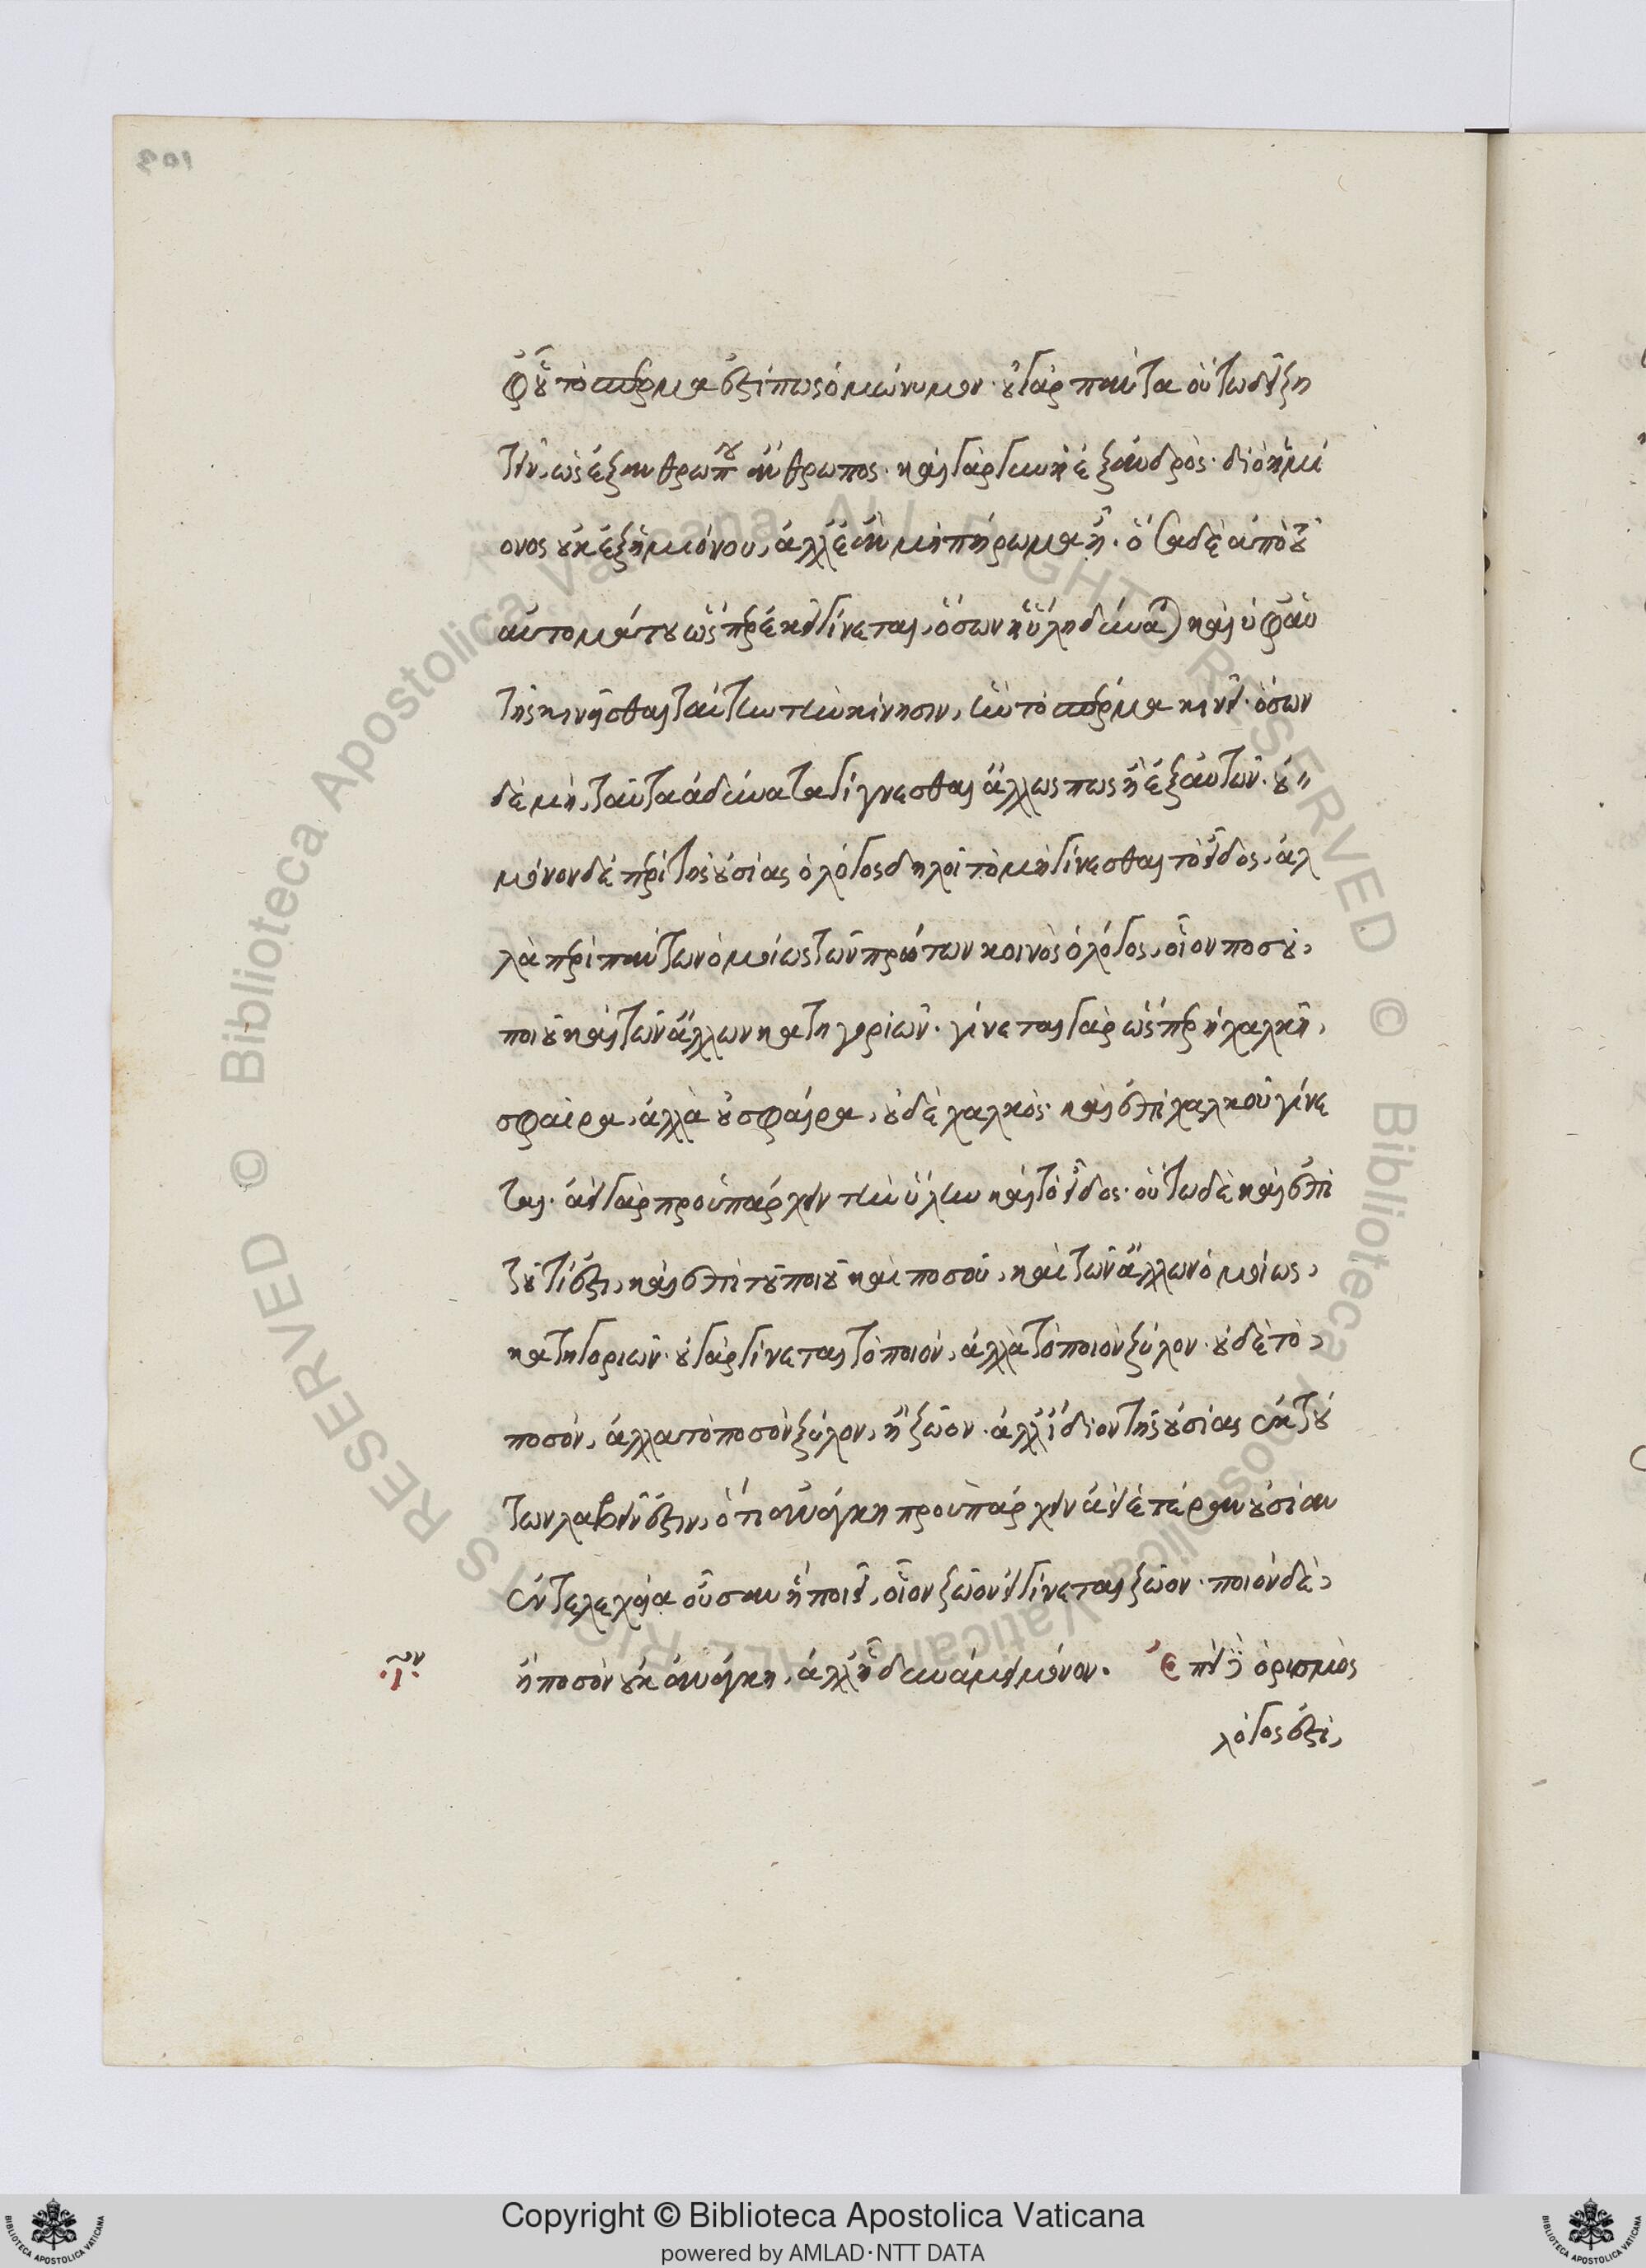 ἀφ' οὗ τὸ σπέρμα ἐστί πως ὁμώνυμον· οὐ γὰρ πάντα οὕτω δεῖ ζη
τεῖν, ὡς ἐξ ἀνθρώπου ἄνθρωπος· καὶ γὰρ γυνὴ ἐξ ἀνδρός· διὸ ἡμί
ονος οὐκ ἐξ ἡμιόνου, ἀλλ' ἐὰν μὴ πήρωμα ᾖ· ὅσα δὲ ἀπὸ τοῦ
αὐτομάτου ὥσπερ ἐκεῖ γίνεται, ὅσων ἡ ὕλη δύναται καὶ ὑφ' αὑ
τῆς κινεῖσθαι ταύτην τὴν κίνησιν, ἣν τὸ σπέρμα κινεῖ· ὅσων
δὲ μή, ταῦτα ἀδύνατα γίγνεσθαι ἄλλως πως ἢ ἐξ αὐτῶν· οὐ
μόνον δὲ περὶ τῆς οὐσίας ὁ λόγος δηλοῖ τὸ μὴ γίνεσθαι τὸ εἶδος, ἀλ
λὰ περὶ πάντων ὁμοίως τῶν πρώτων κοινὸς ὁ λόγος, οἷον ποσοῦ,
ποιοῦ καὶ τῶν ἄλλων κατηγοριῶν· γίνεται γὰρ ὥσπερ ἡ χαλκῆ,
σφαῖρα, ἀλλὰ οὐ σφαῖρα, οὐδὲ χαλκός· καὶ ἐπὶ χαλκοῦ γίνε
ται· ἀεὶ γὰρ προϋπάρχειν τὴν ὕλην καὶ τὸ εἶδος· οὕτω δὲ καὶ ἐπὶ
τοῦ τί ἐστι, καὶ ἐπὶ τοῦ ποιοῦ καὶ ποσοῦ, καὶ τῶν ἄλλων ὁμοίως,
κατηγοριῶν· οὐ γὰρ γίνεται τὸ ποιόν, ἀλλὰ τὸ ποιὸν ξύλον· οὐδὲ τὸ,
ποσόν, ἀλλα τὸ ποσὸν ξύλον, ἢ ζῶον· ἀλλ' ἴδιον τῆς οὐσίας ἐκ τού
των λαβεῖν ἐστιν, ὅτι ἀνάγκη προϋπάρχειν ἀεὶ ἑτέραν οὐσίαν
ἐντελεχείᾳ οὖσαν ἣ ποιεῖ, οἷον ζῶον εἰ γίνεται ζῶον· ποιὸν δὲ,
ἢ ποσὸν οὐκ ἀνάγκη, ἀλλ' ἢ δυνάμει μόνον. Ἐπεὶ δὲ ὁρισμὸς
λόγος ἐστὶ,